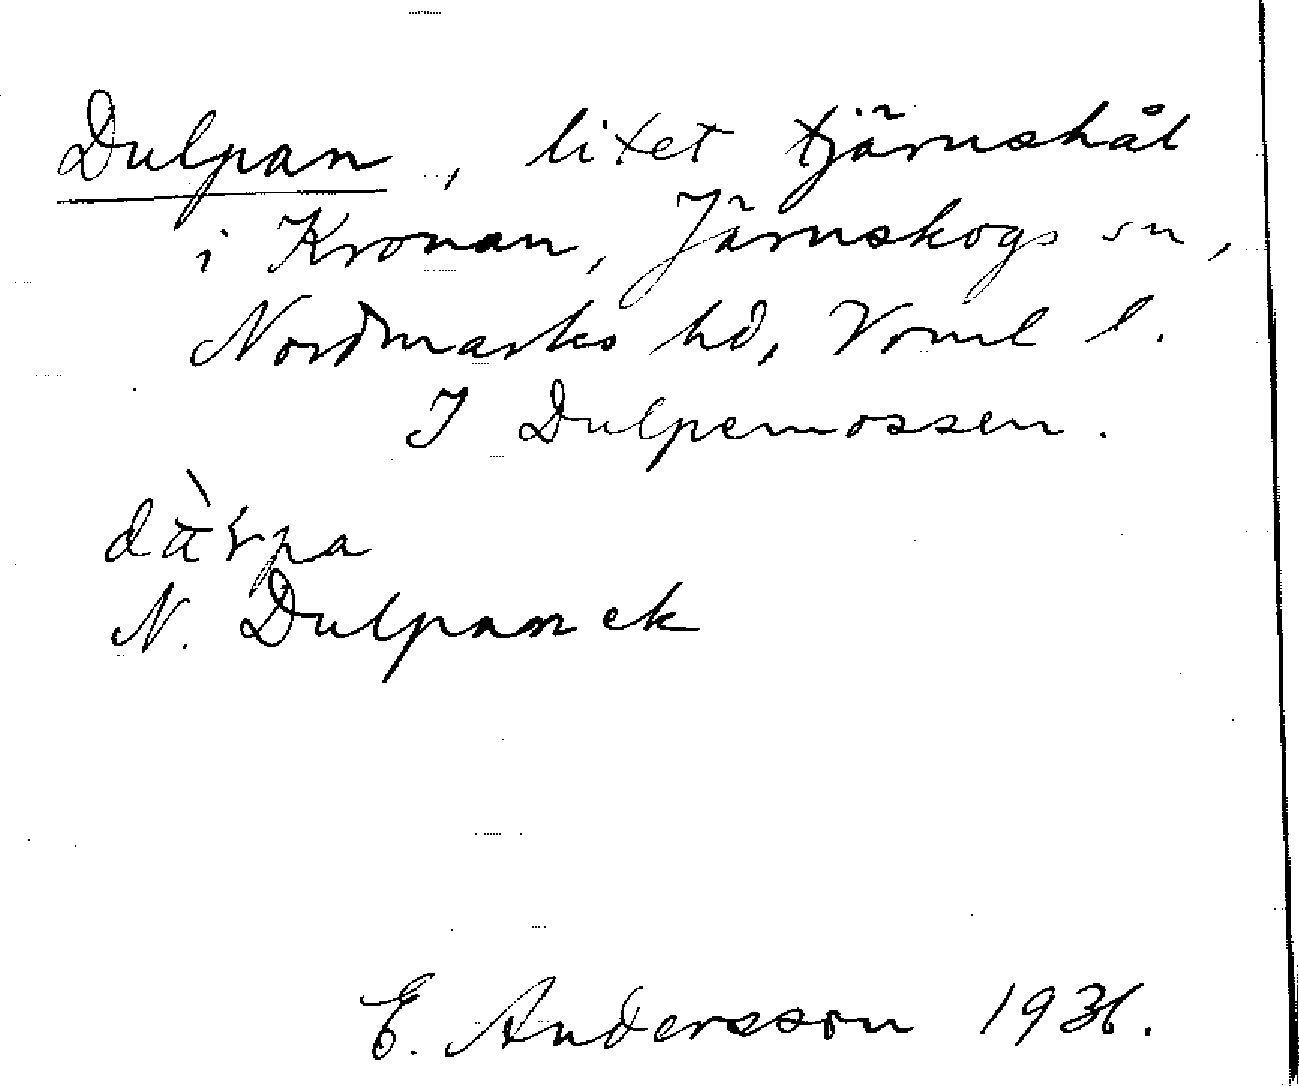 Dulpan, litet tjärnshål
i Kronan, Järnskogs sn,
Nordmarks hd, Vrml l.
I Dulpemossen.
N. Dulpan ek
E. Andersson 1936.